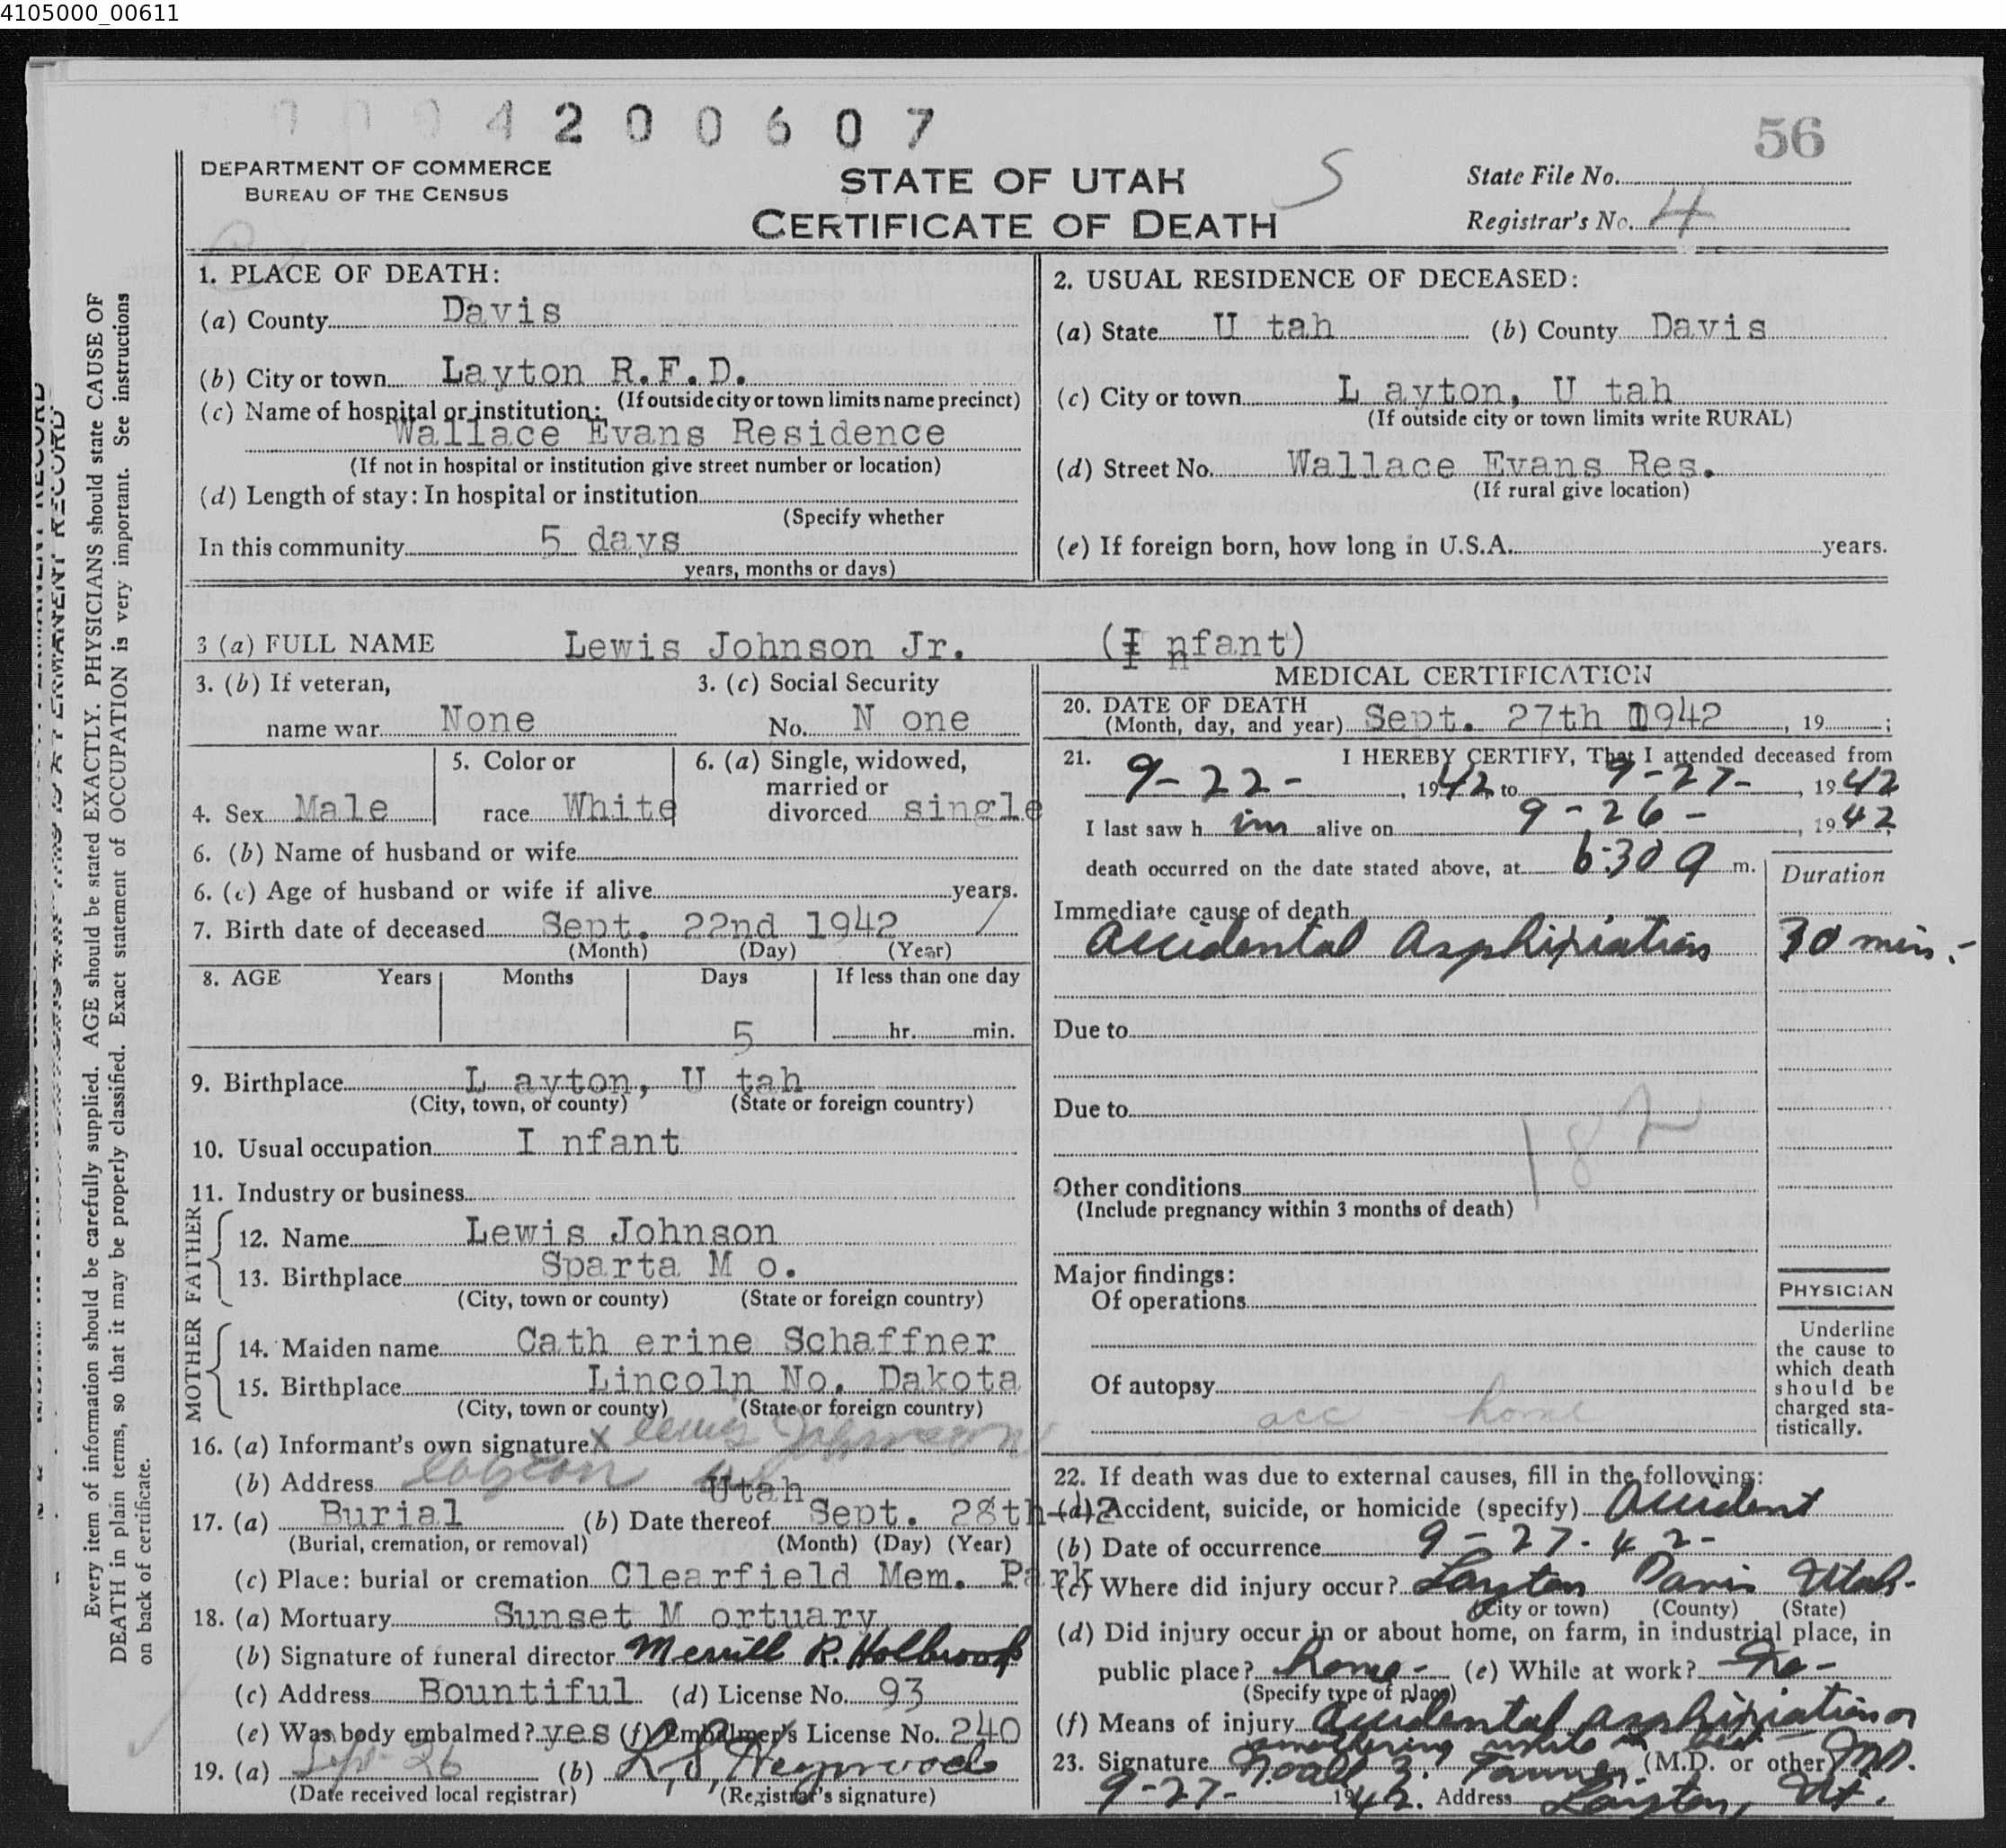 4105000_00611
4 2 0 0 6 0 7
56
DEPARTMENT OF COMMERCE
BUREAU OF THE CENSUS
STATE OF UTAH
CERTIFICATE OF DEATH
S
State File No.
Registrar's No. 4
1. PLACE OF DEATH:
(a) County Davis
(b) City or town Layton R.F.D.
(If outside city or town limits name precinct)
(c) Name of hospital or institution:
Wallace Evans Residence
(If not in hospital or institution give street number or location)
(d) Length of stay: In hospital or institution
(Specify whether
In this community 5 days
years, months or days)
2. USUAL RESIDENCE OF DECEASED:
(a) State U tah (b) County Davis
(c) City or town L ayton, U tah
(If outside city or town limits write RURAL)
(d) Street No. Wallace Evans Res.
(If rural give location)
(e) If foreign born, how long in U.S.A. years.
3 (a) FULL NAME Lewis Johnson Jr. (I nfant)
3. (b) If veteran,
name war None
3. (c) Social Security
No. N one
4. Sex Male
5. Color or
race White
6. (a) Single, widowed,
married or
divorced single
6. (b) Name of husband or wife
6. (c) Age of husband or wife if alive years.
7. Birth date of deceased Sept. 22nd 1942
(Month) (Day) (Year)
8. AGE Years Months Days If less than one day
5 hr. min.
9. Birthplace L ayton, U tah
(City, town, or county) (State or foreign country)
10. Usual occupation I nfant
11. Industry or business
FATHER
12. Name Lewis Johnson
13. Birthplace Sparta M o.
(City, town or county) (State or foreign country)
MOTHER
14. Maiden name Cath erine Schaffner
15. Birthplace Lincoln No. Dakota
(City, town or county) (State or foreign country)
16. (a) Informant's own signature X Lewis Johnson
(b) Address Layton Utah
17. (a) Burial (b) Date thereof Sept. 28th-42
(Burial, cremation, or removal) (Month) (Day) (Year)
(c) Place: burial or cremation Clearfield Mem. Park
18. (a) Mortuary Sunset M ortuary
(b) Signature of funeral director Merrill R. Holbrook
(c) Address Bountiful (d) License No. 93
(e) Was body embalmed? yes (f) Embalmer's License No. 240
19. (a) Sept 26 (b) L. S. Heywood
(Date received local registrar) (Registrar's signature)
MEDICAL CERTIFICATION
20. DATE OF DEATH
(Month, day, and year) Sept. 27th 1942, 19 ;
21. I HEREBY CERTIFY, That I attended deceased from
9-22-, 1942 to 9-27-, 1942
I last saw h im alive on 9-26-, 1942
death occurred on the date stated above, at 6:30 a m.
Duration
Immediate cause of death
Accidental Asphixiation 30 min.-
Due to
Due to
182
Other conditions
(Include pregnancy within 3 months of death)
Major findings:
Of operations
Of autopsy
acc - home
PHYSICIAN
Underline
the cause to
which death
should be
charged sta-
tistically.
22. If death was due to external causes, fill in the following:
(a) Accident, suicide, or homicide (specify) Accident
(b) Date of occurrence 9-27-42-
(c) Where did injury occur? Layton Davis Utah-
(City or town) (County) (State)
(d) Did injury occur in or about home, on farm, in industrial place, in
public place? home- (e) While at work? No-
(Specify type of place)
(f) Means of injury Accidental asphixiation or
smothering while in bed
23. Signature Noall Z. Tanner. (M.D. or other) MD.
9-27- 1942. Address Layton, Ut.
Every item of information should be carefully supplied. AGE should be stated EXACTLY. PHYSICIANS should state CAUSE OF
DEATH in plain terms, so that it may be properly classified. Exact statement of OCCUPATION is very important. See instructions
on back of certificate.